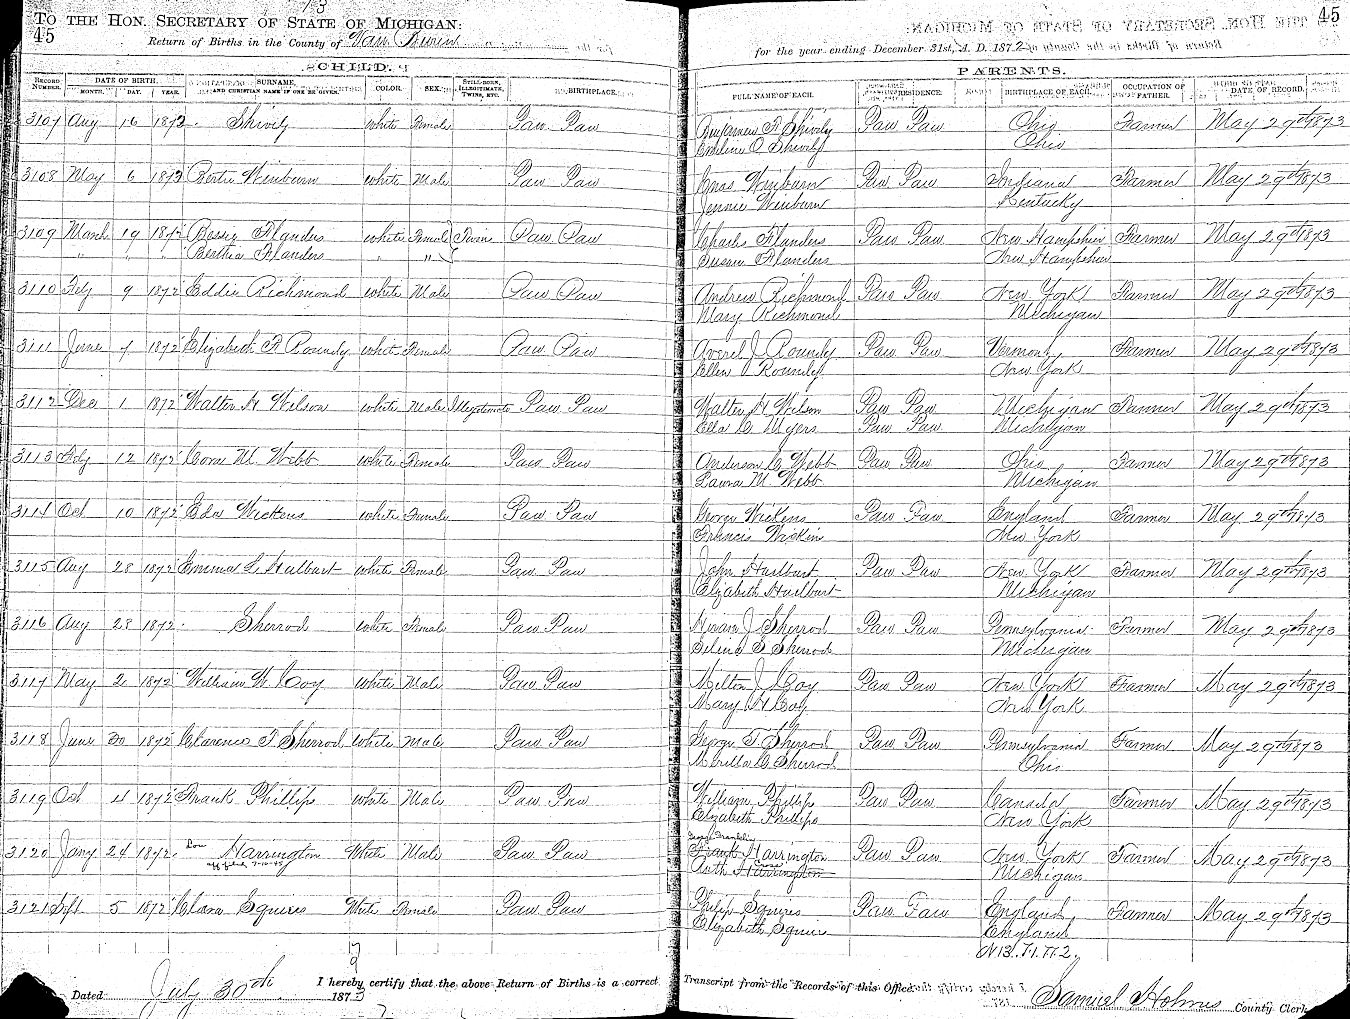 TO THE HON. SECRETARY OF STATE OF MICHIGAN:
45
45
Return of Births in the County of Van Buren
for the year ending December 31st, A. D. 1872
CHILD.
PARENTS.
RECORD NUMBER. DATE OF BIRTH. MONTH. DAY. YEAR. SURNAME, AND CHRISTIAN NAME IF ONE BE GIVEN. COLOR. SEX. STILL-BORN, ILLEGITIMATE, TWINS, ETC. BIRTHPLACE. FULL NAME OF EACH. RESIDENCE. BIRTHPLACE OF EACH. OCCUPATION OF FATHER. DATE OF RECORD.
3107 Aug 16 1872 Shively white Female Paw Paw Benjamin F Shively Paw Paw Ohio Farmer May 29th 1873
Emeline O Shively Ohio
3108 May 6 1873 Bertie Winburn white Male Paw Paw Winburn Paw Paw Indiana Farmer May 29th 1873
Jennie Winburn Kentucky
3109 March 19 1872 Bessie Flanders white Female Twins Paw Paw Charles Flanders Paw Paw New Hampshire Farmer May 29th 1873
" " " Bertha Flanders " " Susan Flanders New Hampshire
3110 Feb 9 1872 Eddie Richmond white Male Paw Paw Andrew Richmond Paw Paw New York Farmer May 29th 1873
Mary Richmond Michigan
3111 June 7 1872 Elizabeth A Roundy white Female Paw Paw Averel J Roundy Paw Paw Vermont Farmer May 29th 1873
Ellen Roundy New York
3112 Dec 1 1872 Walter H Wilson white Male Illegitimate Paw Paw Walter H Wilson Paw Paw Michigan Farmer May 29th 1873
Ella C Myers Paw Paw Michigan
3113 Feb 12 1872 Cora M. Webb white Female Paw Paw Anderson C Webb Paw Paw Ohio Farmer May 29th 1873
Laura M. Webb Michigan
3114 Oct 10 1872 Eda Wickens white Female Paw Paw George Wickens Paw Paw England Farmer May 29th 1873
Francis Wickin New York
3115 Aug 28 1872 Emma L Hulbart white Female Paw Paw John Hulburt Paw Paw New York Farmer May 29th 1873
Elizabeth Hulburt Michigan
3116 Aug 28 1872 Sherrod white Female Paw Paw Hiram J Sherrod Paw Paw Pennsylvania Farmer May 29th 1873
Selina S Sherrod Michigan
3117 May 2 1872 William W. Coy white Male Paw Paw Milton J Coy Paw Paw New York Farmer May 29th 1873
Mary H Coy New York
3118 June 20 1872 Clarence F Sherrod white Male Paw Paw George T Sherrod Paw Paw Pennsylvania Farmer May 29th 1873
Sherrod Ohio
3119 Oct 4 1872 Frank Phillips white Male Paw Paw William Phillip Paw Paw Canada Farmer May 29th 1873
Elizabeth Phillips New York
3120 Jany 24 1872 Lou Harrington White Male Paw Paw Frank Harrington Paw Paw New York Farmer May 29th 1873
George Franklin
Ruth Harrington Michigan
3121 Sept 5 1872 Clara Squires White Female Paw Paw Philip Squires Paw Paw England Farmer May 29th 1873
Elizabeth Squires England
Dated July 30th 1873 I hereby certify that the above Return of Births is a correct Transcript from the Records of this Office.
Samuel Holmes County Clerk